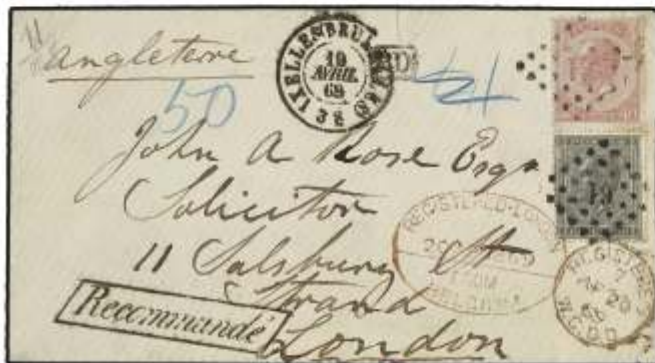 Angleterre
IXELLES (BRUXELLES)
19
AVRIL
68
PD
50
John A Rose Esqr
Solicitor
11 Salsbury St
Strand
London
Recommandé
REGISTERED LONDON
FROM
BELGIUM
REGISTERED
20